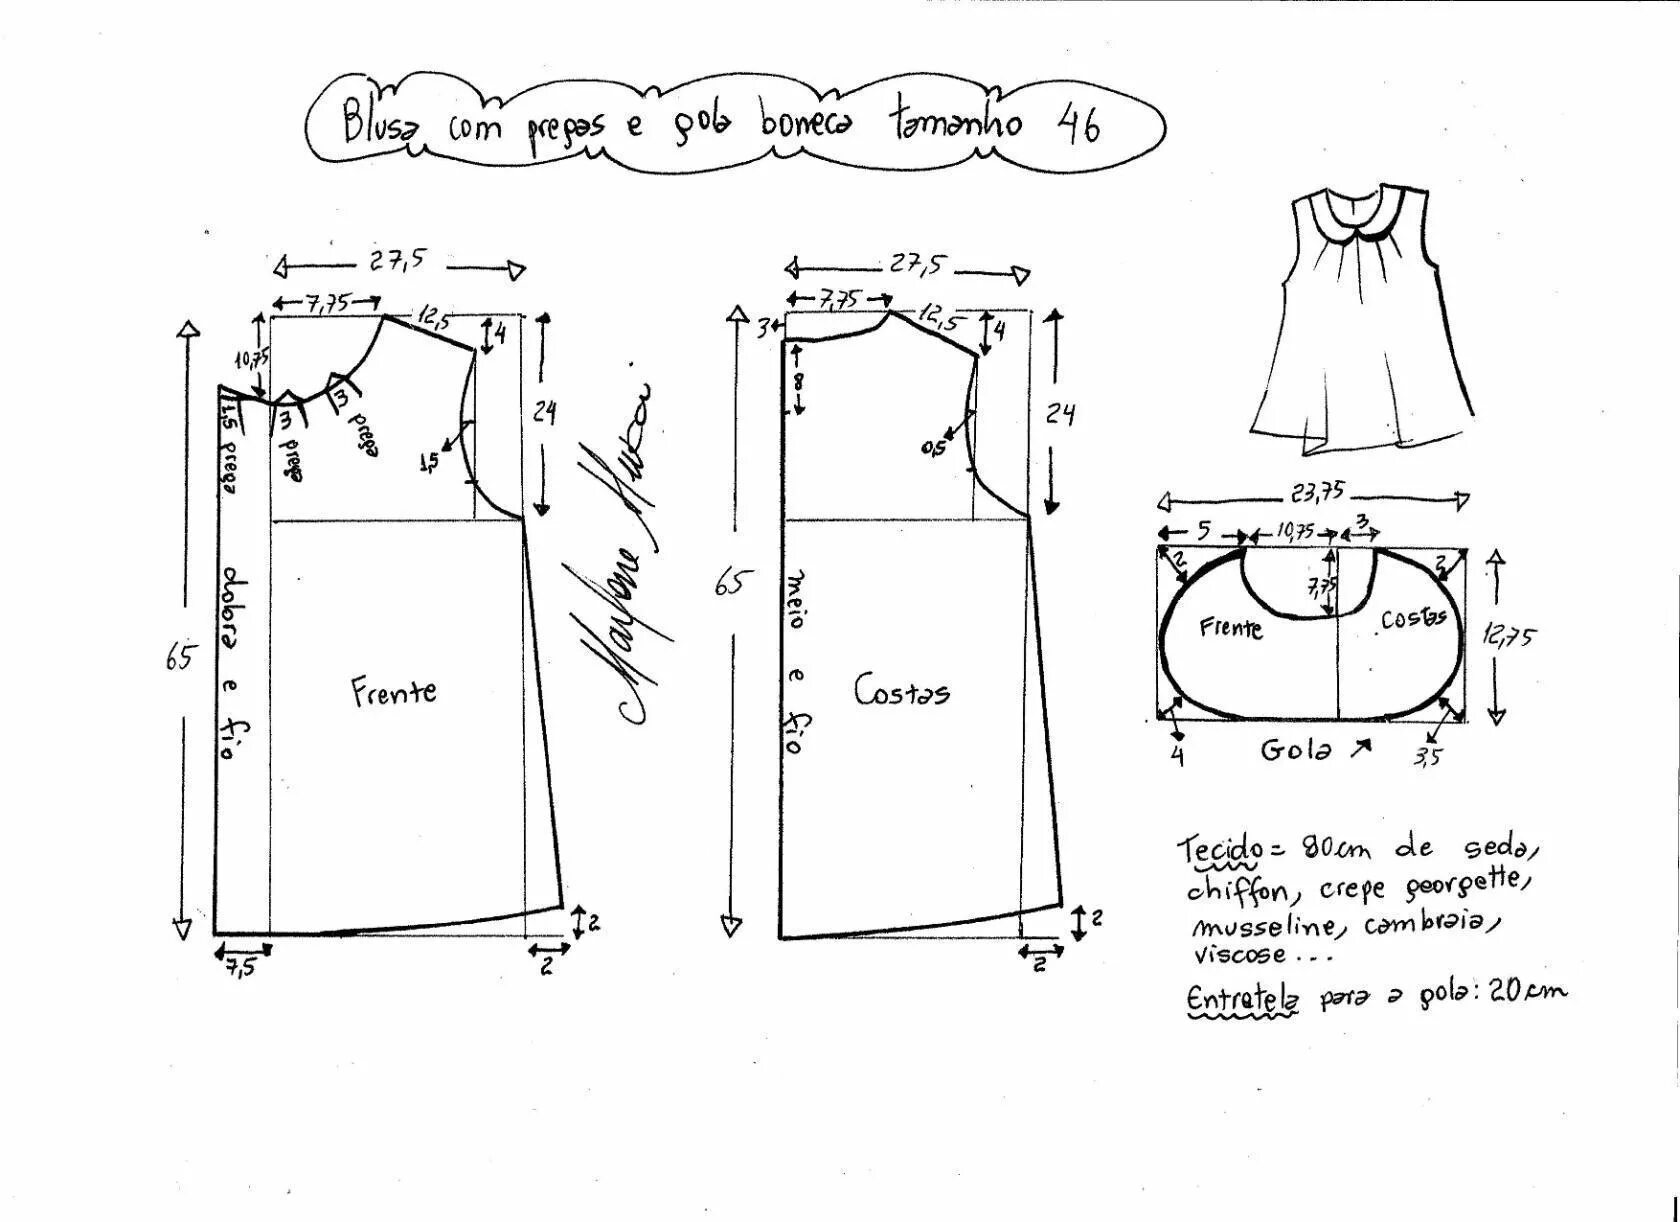 Blusa com pregas e gola boneca tamanho 46
27,5
7,75
12,5
4
10,75
24
65
1,5 prega
3 prega
3 prega
1,5
dobra e fio
Frente
7,5
2
2
Marlene Mukai
27,5
7,75
12,5
4
3
8
24
0,5
65
meio e fio
Costas
2
2
23,75
5
10,75
3
2
2
7,75
Frente
Costas
12,75
4
3,5
Gola
Tecido = 80cm de seda,
chiffon, crepe georgette,
musseline, cambraia,
viscose ...
Entretela para a gola: 20cm